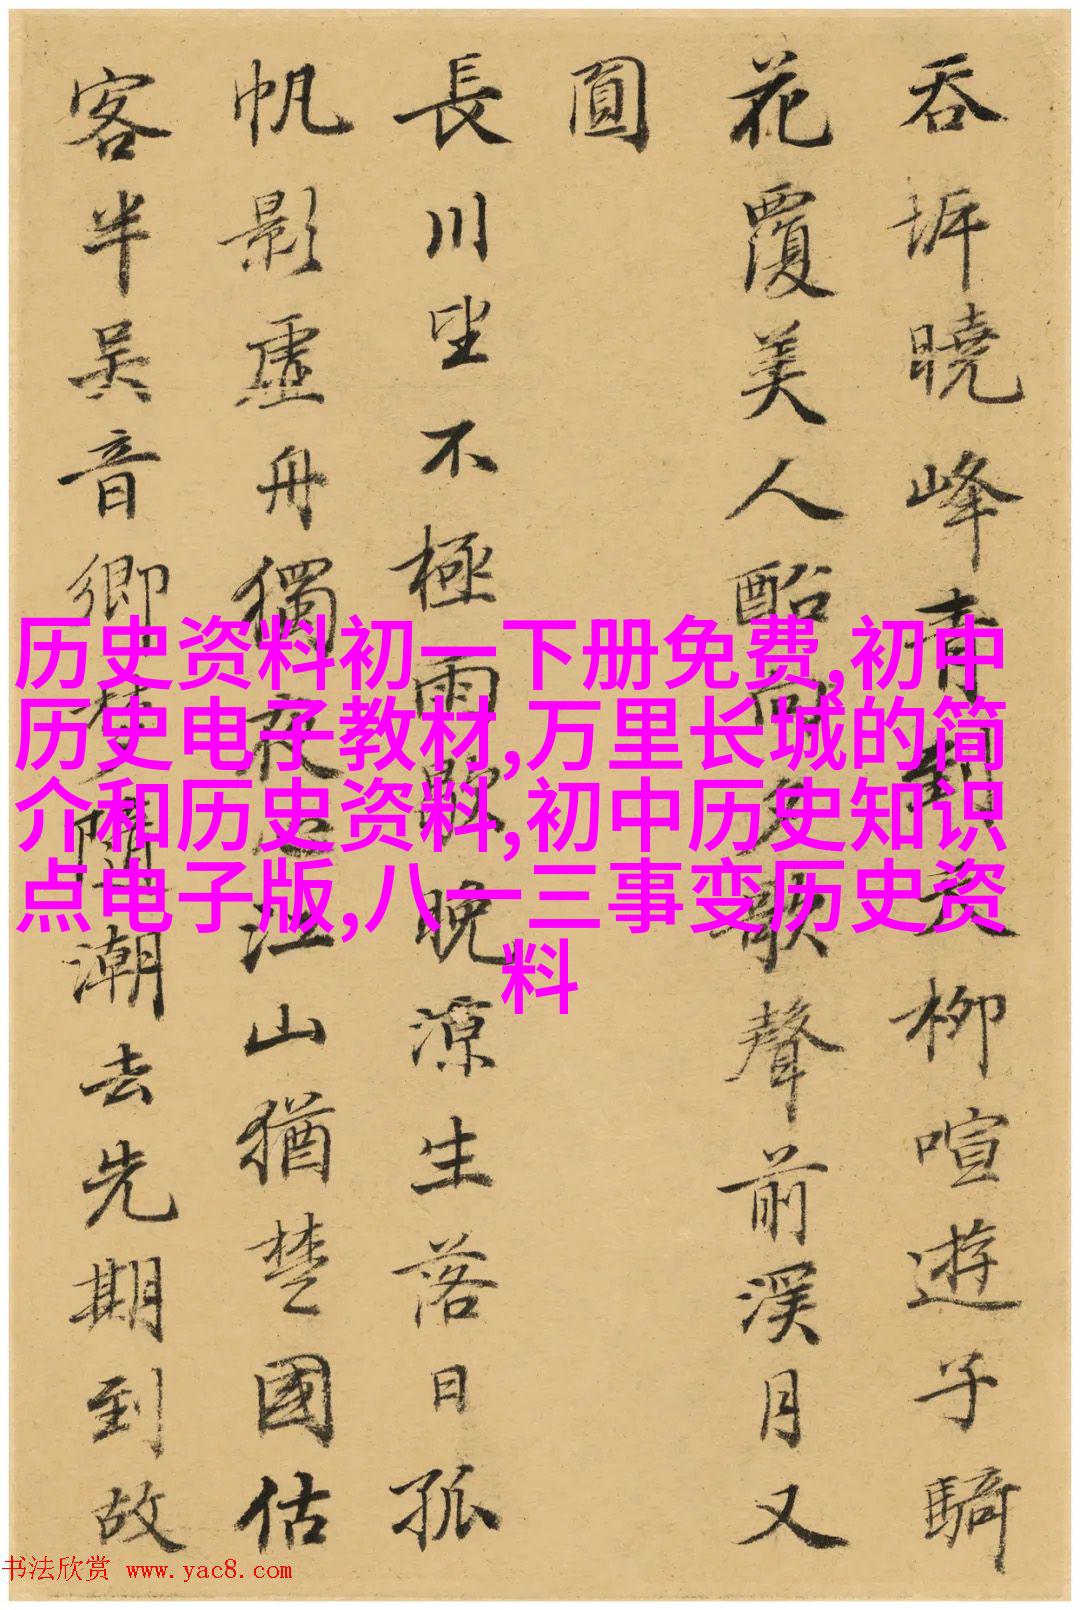 吞坼曉峰青到天柳喧遊子騎
花覆美人船向夕歌聲前溪月又
圓
長川望不極雨歇晚涼生落日孤
帆影虛舟獨夜心江山猶楚國估
客半吳音鄉夢隨潮去先期到故
历史资料初一下册免费,初中
历史电子教材,万里长城的简
介和历史资料,初中历史知识
点电子版,八一三事变历史资
料
书法欣赏 www.yac8.com